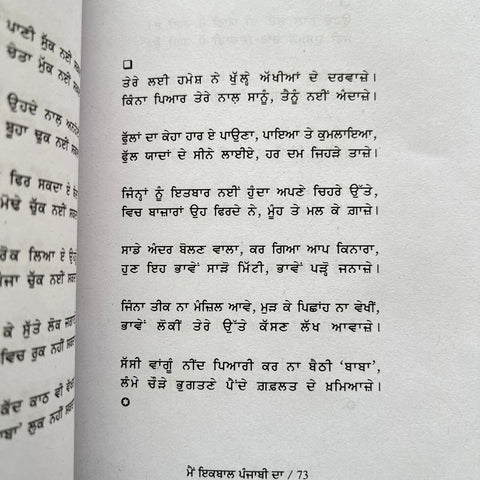 ਪਾਣੀ ਸੁੱਕ ਨਈਂ
ਚੇਤਾ ਮੁੱਕ ਨਈਂ
ਉਹਦੇ ਨਾਲ
ਬੂਹਾ ਢੁਕ ਨਈਂ
ਫਿਰ ਸਕਦਾ ਏ
ਮੋਢੇ ਚੁੱਕ ਨਈਂ
ਰੋਕ ਲਿਆ ਏ
ਚੁੱਕ ਨਈਂ
ਕੇ ਸੁੱਤੇ ਲੋਕ
ਵਿਚ ਰੁਕ ਨਹੀਂ
ਕੱਦ ਕਾਠ ਵੀ
ਲੁਕ ਨਹੀਂ
ਤੇਰੇ ਲਈ ਹਮੇਸ਼ ਨੇ ਖੁੱਲ੍ਹੇ ਅੱਖੀਆਂ ਦੇ ਦਰਵਾਜ਼ੇ।
ਕਿੰਨਾ ਪਿਆਰ ਤੇਰੇ ਨਾਲ ਸਾਨੂੰ, ਤੈਨੂੰ ਨਈਂ ਅੰਦਾਜ਼ੇ।
ਫੁੱਲਾਂ ਦਾ ਕੇਹਾ ਹਾਰ ਏ ਪਾਉਣਾ, ਪਾਇਆ ਤੇ ਕੁਮਲਾਇਆ,
ਫੁੱਲ ਯਾਦਾਂ ਦੇ ਸੀਨੇ ਲਾਈਏ, ਹਰ ਦਮ ਜਿਹੜੇ ਤਾਜ਼ੇ।
ਜਿੰਨ੍ਹਾਂ ਨੂੰ ਇਤਬਾਰ ਨਈਂ ਹੁੰਦਾ ਅਪਣੇ ਚਿਹਰੇ ਉੱਤੇ,
ਵਿਚ ਬਾਜ਼ਾਰਾਂ ਉਹ ਫਿਰਦੇ ਨੇ, ਮੂੰਹ ਤੇ ਮਲ ਕੇ ਗ਼ਾਜ਼ੇ।
ਸਾਡੇ ਅੰਦਰ ਬੋਲਣ ਵਾਲਾ, ਕਰ ਗਿਆ ਆਪ ਕਿਨਾਰਾ,
ਹੁਣ ਇਹ ਭਾਵੇਂ ਸਾੜੋ ਮਿੱਟੀ, ਭਾਵੇਂ ਪੜ੍ਹੋ ਜਨਾਜ਼ੇ।
ਜਿੰਨਾ ਤੀਕ ਨਾ ਮੰਜ਼ਿਲ ਆਵੇ, ਮੁੜ ਕੇ ਪਿਛਾਂਹ ਨਾ ਵੇਖੀਂ,
ਭਾਵੇਂ ਲੋਕੀਂ ਤੇਰੇ ਉੱਤੇ ਕੱਸਣ ਲੱਖ ਆਵਾਜ਼ੇ।
ਸੱਸੀ ਵਾਂਗੂੰ ਨੀਂਦ ਪਿਆਰੀ ਕਰ ਨਾ ਬੈਠੀਂ 'ਬਾਬਾ',
ਲੰਮੇ ਚੌੜੇ ਭੁਗਤਣੇ ਪੈਂਦੇ ਗ਼ਫ਼ਲਤ ਦੇ ਖ਼ਮਿਆਜ਼ੇ।
ਮੈਂ ਇਕਬਾਲ ਪੰਜਾਬੀ ਦਾ / 73